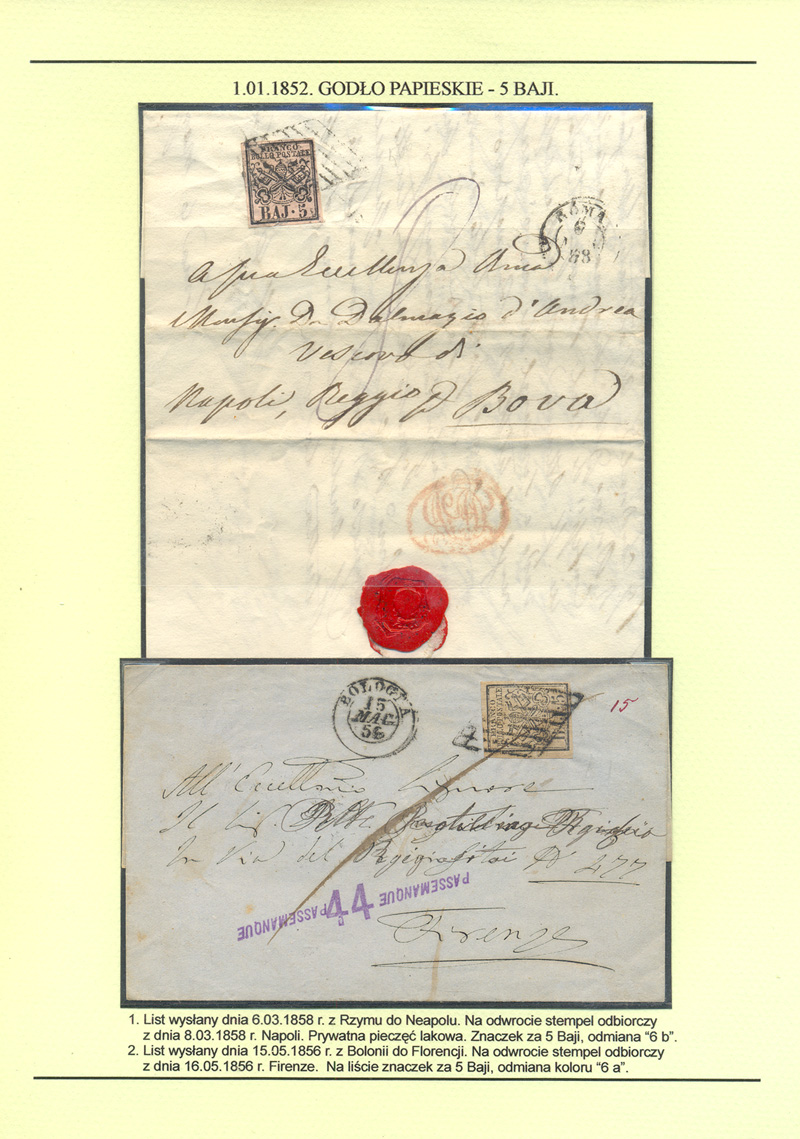 1.01.1852. GODŁO PAPIESKIE - 5 BAJI.
FRANCO
BOLLO POSTALE
BAJ. 5
ROMA
6
58
A Sua Eccellenza
Monsig. Dn Dalmazio d'Andrea
Vescovo di
Napoli, Reggio p Bova
BOLOGNA
15
MAG
56
FRANCO
BOLLO POSTALE
15
All' Eccellmo Signore
Il Sig.
In Via dei No 477
PASSEMANQUE 44 PASSEMANQUE
Firenze
1. List wysłany dnia 6.03.1858 r. z Rzymu do Neapolu. Na odwrocie stempel odbiorczy
z dnia 8.03.1858 r. Napoli. Prywatna pieczęć lakowa. Znaczek za 5 Baji, odmiana “6 b”.
2. List wysłany dnia 15.05.1856 r. z Bolonii do Florencji. Na odwrocie stempel odbiorczy
z dnia 16.05.1856 r. Firenze. Na liście znaczek za 5 Baji, odmiana koloru “6 a”.